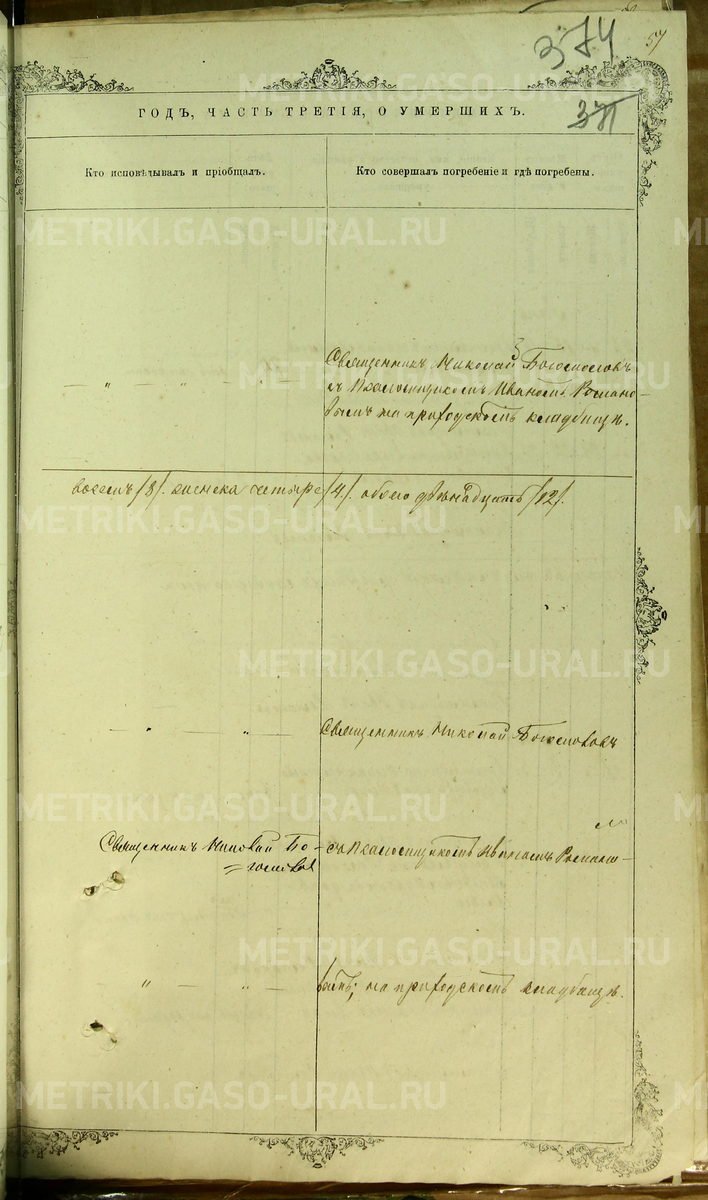 374
57
371
ГОДЪ, ЧАСТЬ ТРЕТІЯ, О УМЕРШИХЪ.
Кто исповѣдывалъ и пріобщалъ.
Кто совершалъ погребеніе и гдѣ погребены.
METRIKI.GASO-URAL.RU
Священникъ Николай Богословъ
съ Псаломщикомъ Иваномъ Романо-
вымъ на приходскомъ кладбищѣ.
восемь /8/. женска четыре /4/. обоего двѣнадцать /12/.
Священникъ Николай Богословъ
Священникъ Николай Бо-
=гословъ
съ Псаломщикомъ Иваномъ Романо-
вымъ, на приходскомъ кладбищѣ.